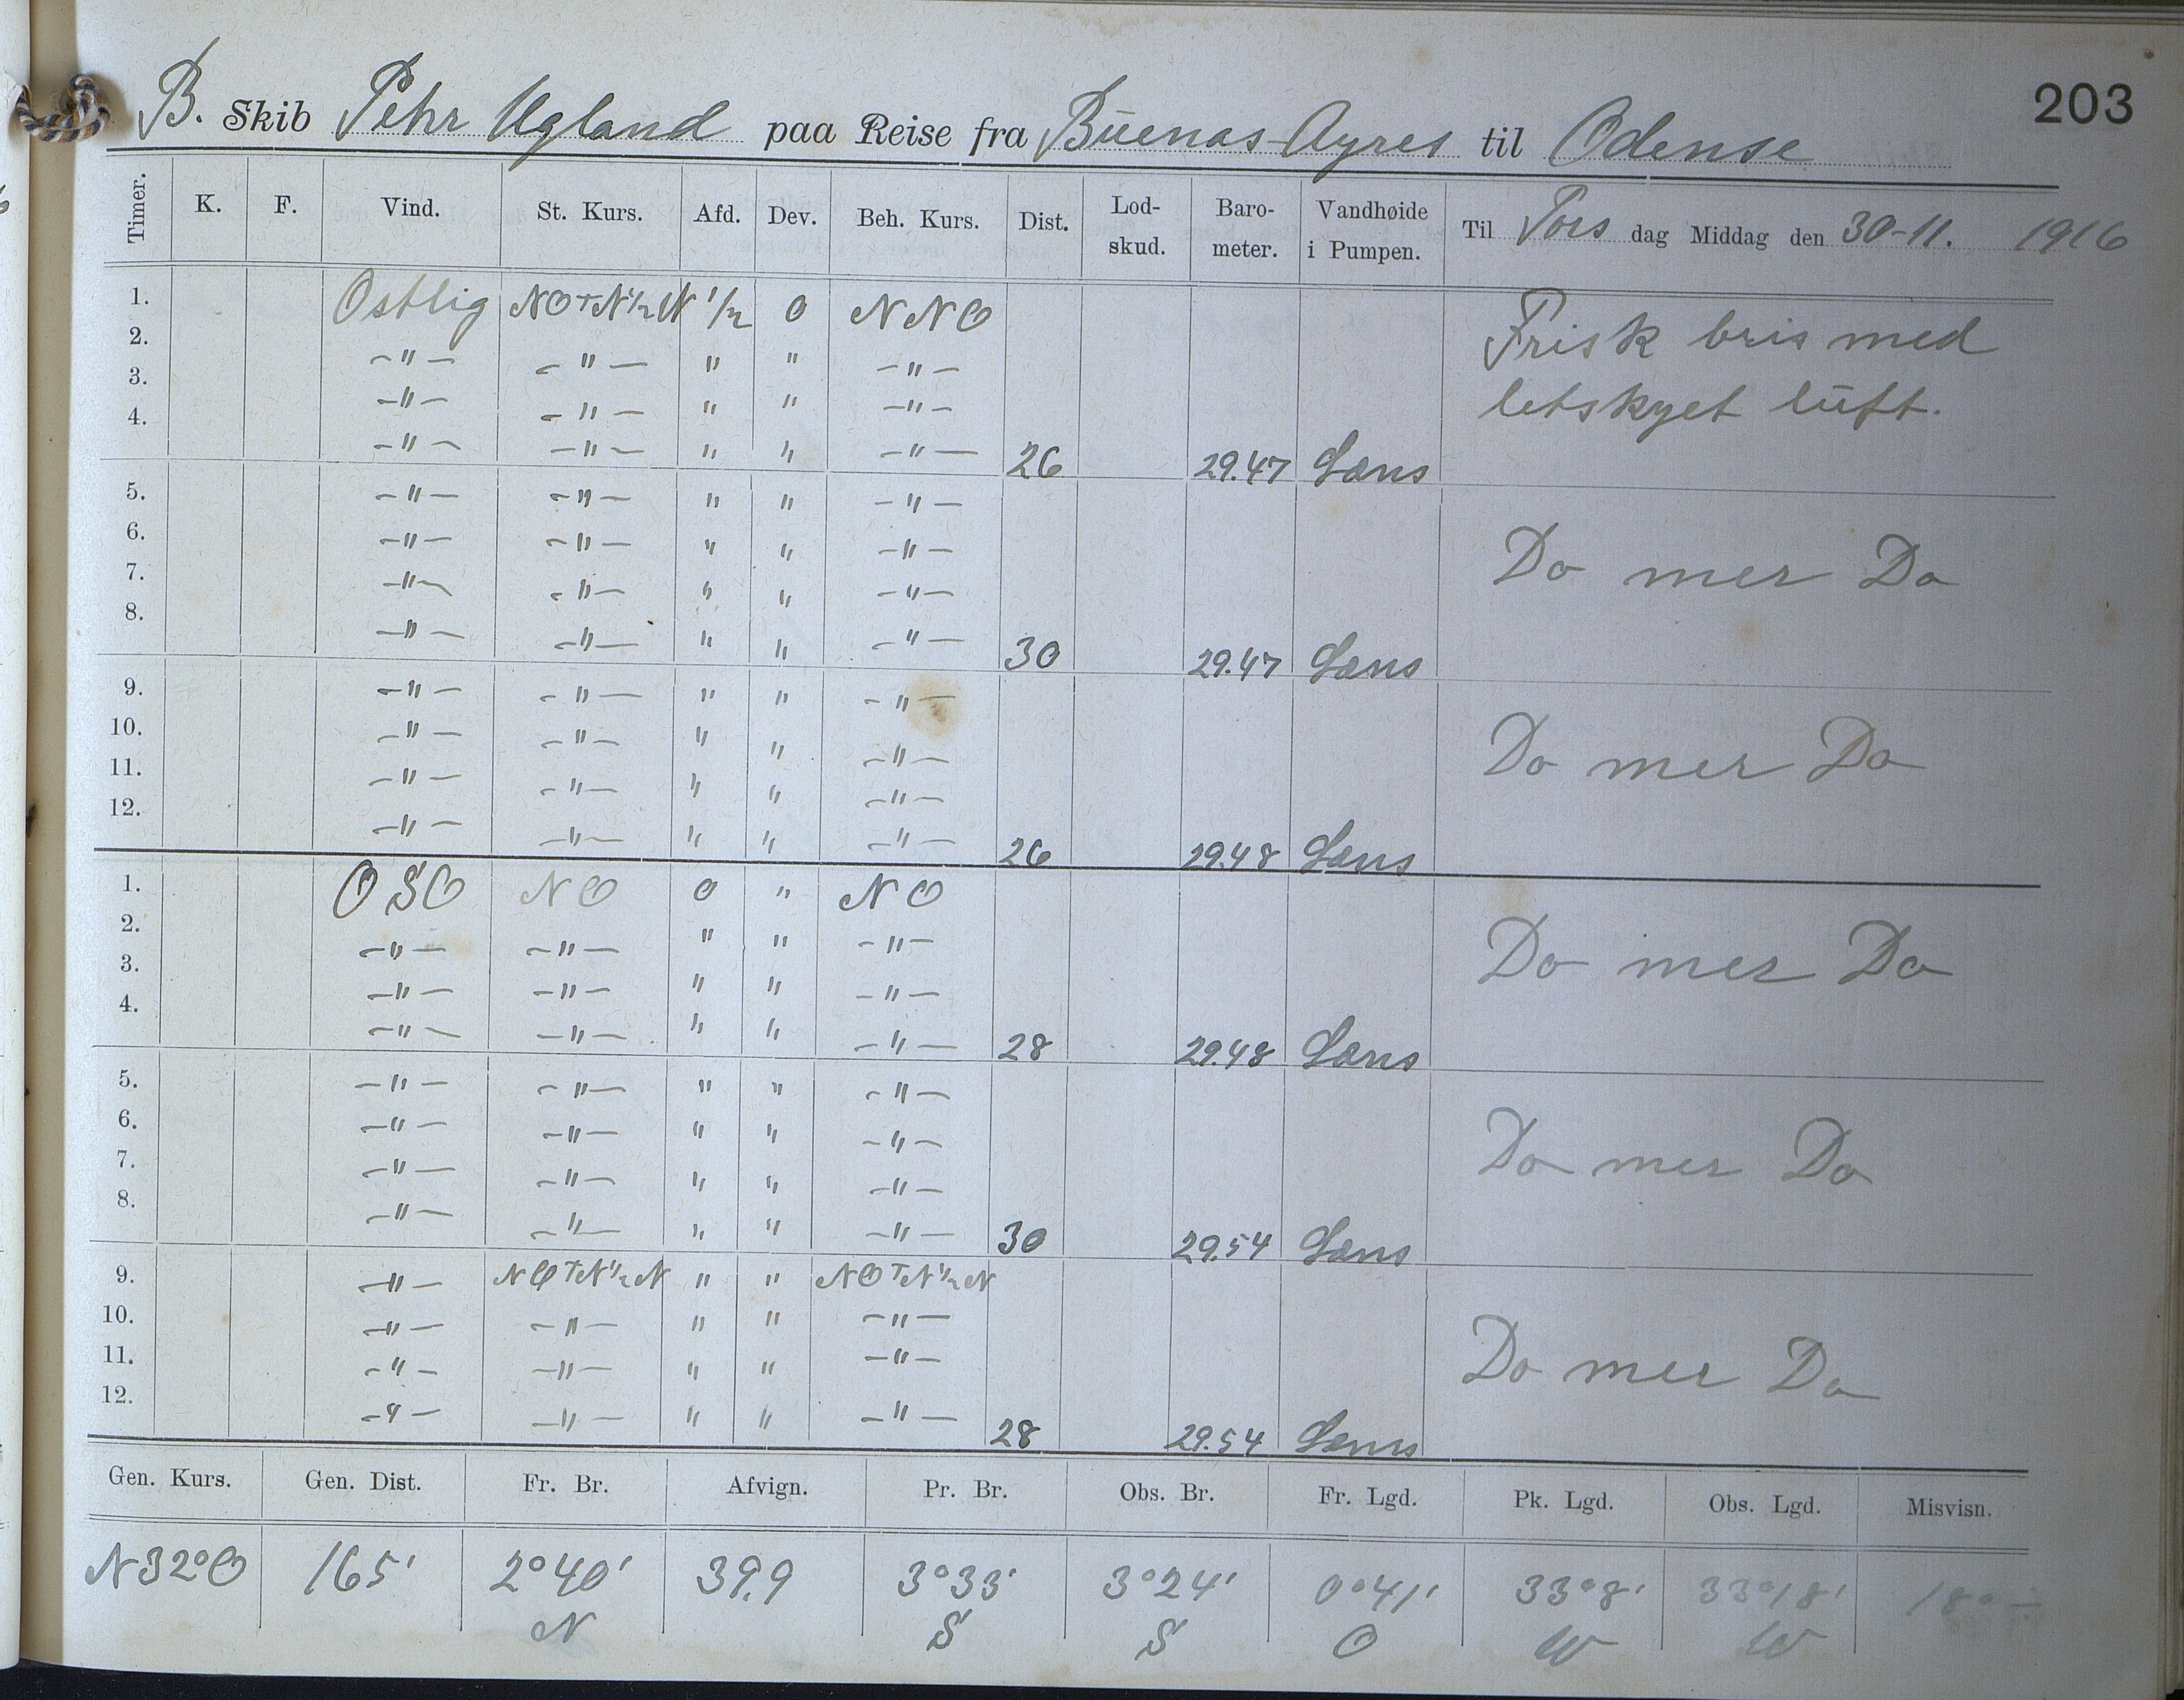 203
B. Skib Pehr Ugland paa Reise fra Buenas Ayres til Odense
Timer. K. F. Vind. St. Kurs. Afd. Dev. Beh. Kurs. Dist. Lod-skud. Baro-meter. Vandhøide i Pumpen. Til Tors dag Middag den 30-11. 1916
1. Ostlig NOTN½N ½ 0 NNO Frisk bris med
2. -"- -"- " " -"-
3. -"- -"- " " -"- letskyet luft.
4. -"- -"- " " -"- 26 29.47 Læns
5. -"- -"- " " -"-
6. -"- -"- " " -"- Do mer Do
7. -"- -"- " " -"-
8. -"- -"- " " -"- 30 29.47 Læns
9. -"- -"- " " -"-
10. -"- -"- " " -"- Do mer Do
11. -"- -"- " " -"-
12. -"- -"- " " -"- 26 29.48 Læns
1. OSO NO 0 " NO
2. -"- -"- " " -"- Do mer Do
3. -"- -"- " " -"-
4. -"- -"- " " -"- 28 29.48 Læns
5. -"- -"- " " -"-
6. -"- -"- " " -"- Do mer Do
7. -"- -"- " " -"-
8. -"- -"- " " -"- 30 29.54 Læns
9. -"- NOTN½N " " NOTN½N
10. -"- -"- " " -"- Do mer Do
11. -"- -"- " " -"-
12. -"- -"- " " -"- 28 29.54 Læns
Gen. Kurs. Gen. Dist. Fr. Br. Afvign. Pr. Br. Obs. Br. Fr. Lgd. Pk. Lgd. Obs. Lgd. Misvisn.
N32°O 165' 2°40' 39,9 3°33' 3°24' 0°41' 33°8' 33°18' 18°
N S S O W W